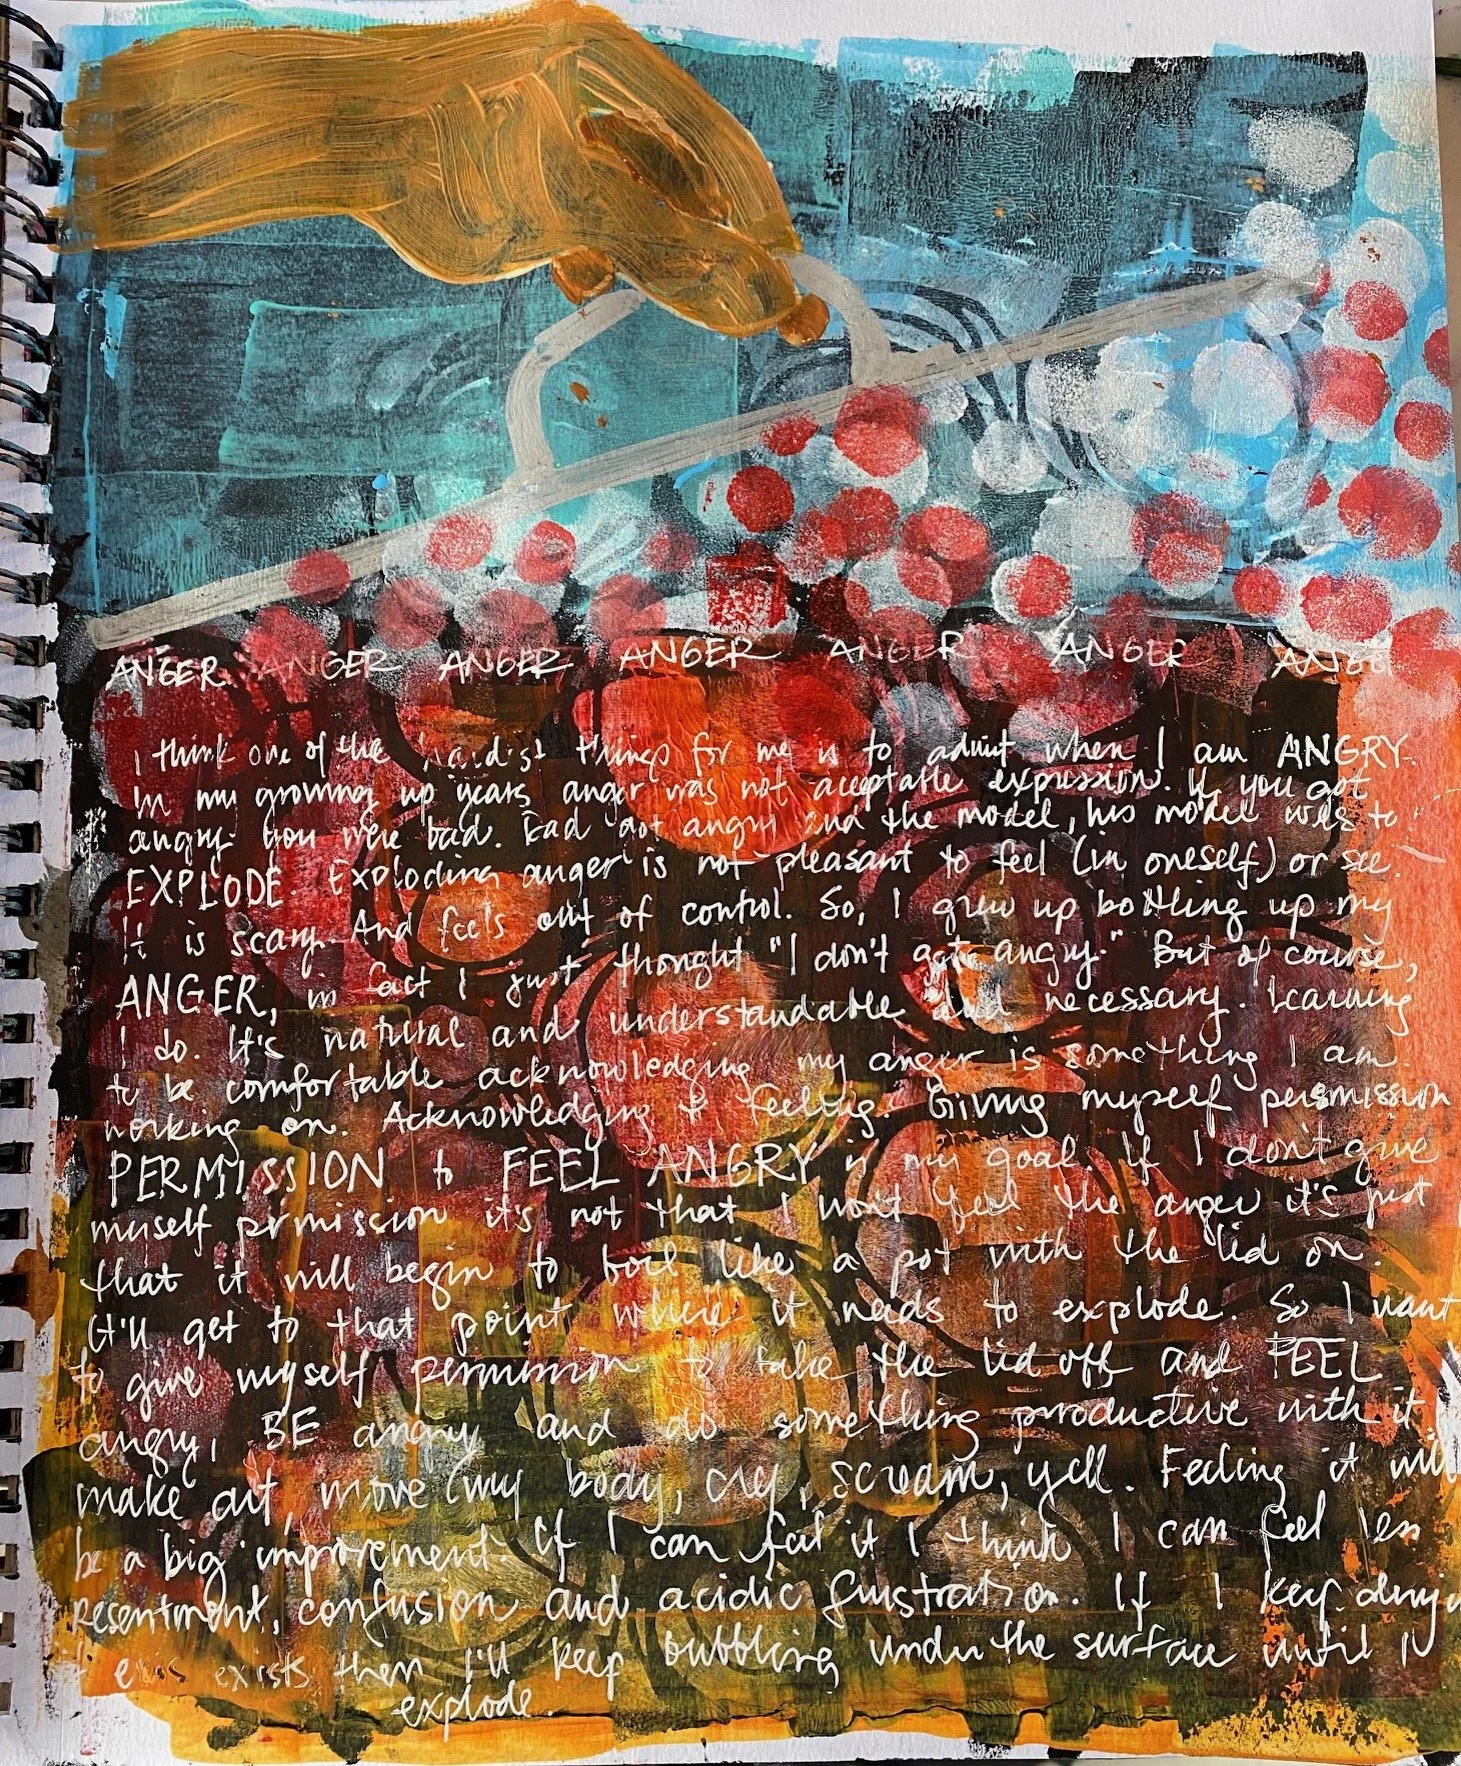 ANGER ANGER ANGER ANGER ANGER ANGER ANGE
I think one of the hardest things for me is to admit when I am ANGRY.
In my growing up years anger was not acceptable expression. If you got
angry you were bad. Dad got angry and the model, his model was to
EXPLODE. Exploding anger is not pleasant to feel (in oneself) or see.
It is scary. And feels out of control. So, I grew up bottling up my
ANGER, in fact I just thought "I don't get angry." But of course,
I do. It's natural and understandable and necessary. Learning
to be comfortable acknowledging my anger is something I am
working on. Acknowledging + feeling. Giving myself permission
PERMISSION to FEEL ANGRY is my goal. If I don't give
myself permission it's not that I won't feel the anger it's just
that it will begin to boil like a pot with the lid on.
It'll get to that point where it needs to explode. So I want
to give myself permission to take the lid off and FEEL
angry, BE angry and do something productive with it
make art, move my body, cry, scream, yell. Feeling it will
be a big improvement. If I can feel it I think I can feel less
resentment, confusion and acidic frustration. If I keep denyi
it exis exists then I'll keep bubbling under the surface until I
explode.